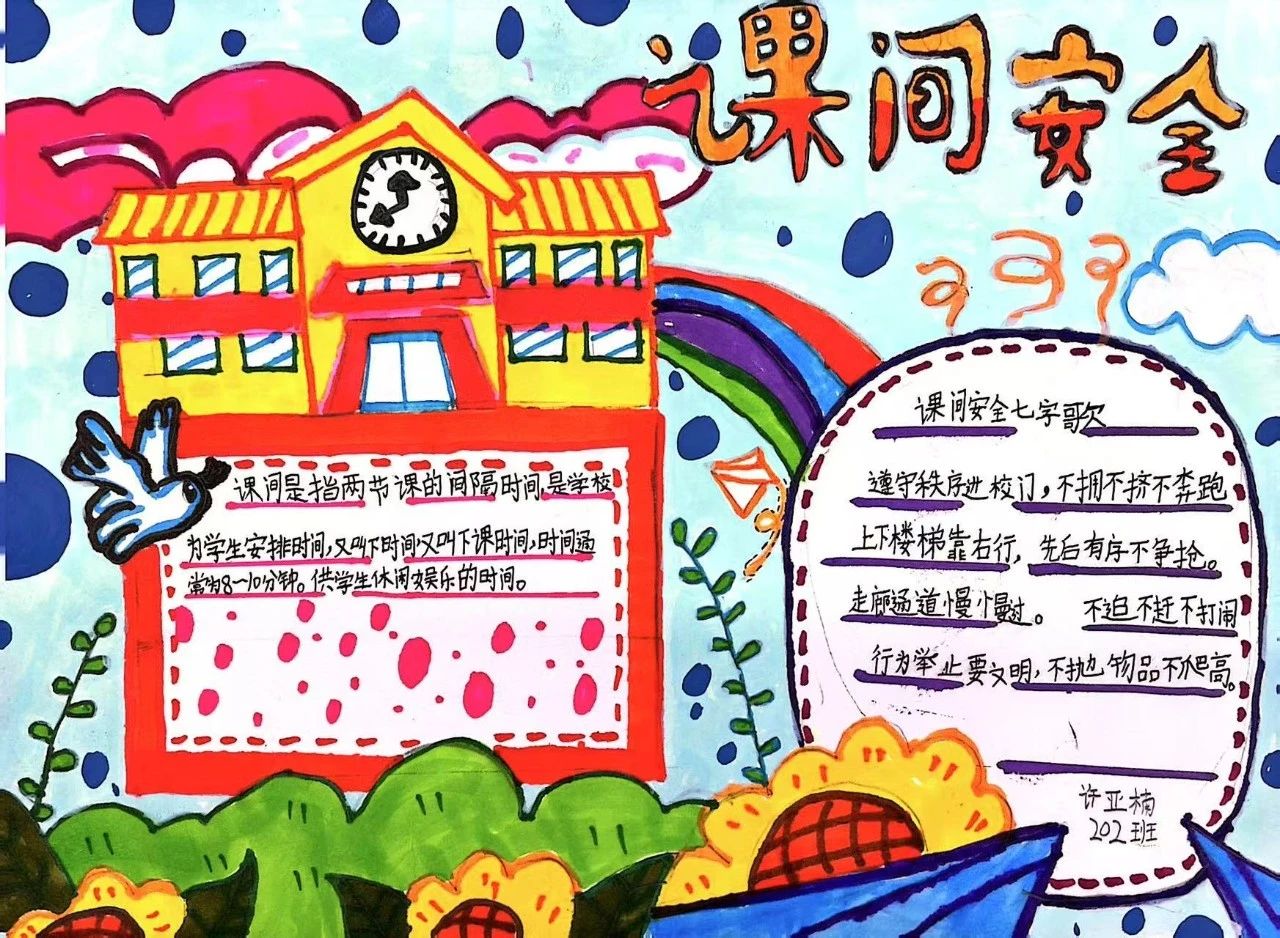 课间安全
课间是指两节课的间隔时间,是学校
为学生安排时间,又叫下时间又叫下课时间,时间通
常为8~10分钟。供学生休闲娱乐的时间。
课间安全七字歌欠
遵守秩序进校门,不拥不挤不奔跑
上下楼梯靠右行,先后有序不争抢。
走廊通道慢慢过。 不追不赶不打闹
行为举止要文明,不抛物品不爬高。
许亚楠
202班